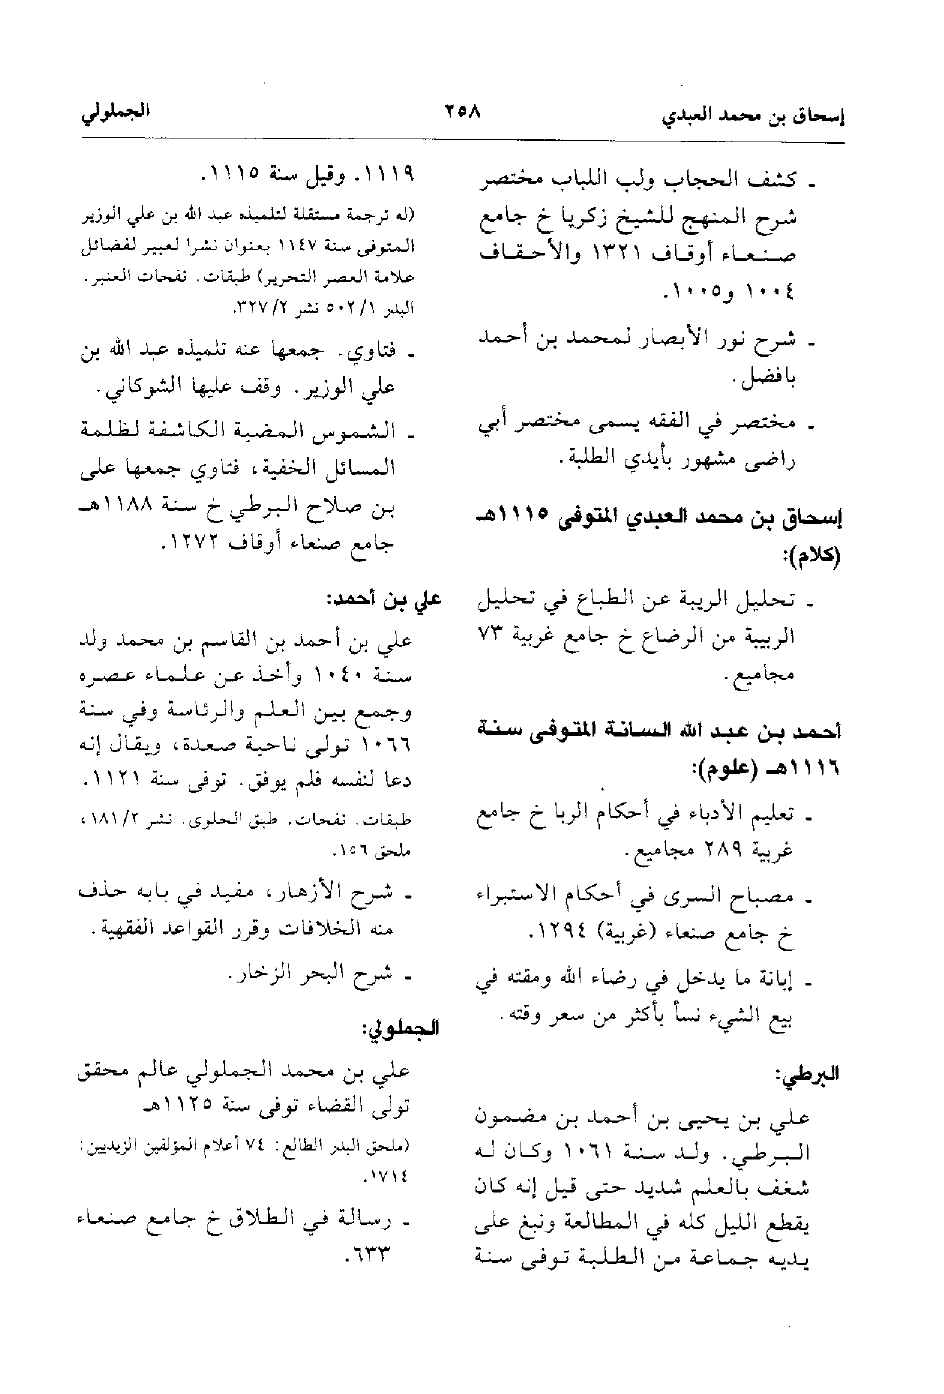 إسحاق بن محمد العبدي ٢٥٨ الجملولي
- كشف الحجاب ولب اللباب مختصر
شرح المنهج للشيخ زكريا خ جامع
صنعاء أوقاف ١٣٢١ والأحقاف
١٠٠٤ و١٠٠٥.
- شرح نور الأبصار لمحمد بن أحمد
بافضل.
- مختصر في الفقه يسمى مختصر أبي
راضى مشهور بأيدي الطلبة.
إسحاق بن محمد العبدي المتوفى ١١١٥هـ
(كلام):
- تحليل الريبة عن الطباع في تحليل
الربيبة من الرضاع خ جامع غربية ٧٣
مجاميع.
أحمد بن عبد الله السانة المتوفى سنة
١١١٦هـ (علوم):
- تعليم الأدباء في أحكام الربا خ جامع
غربية ٢٨٩ مجاميع.
- مصباح السرى في أحكام الاستبراء
خ جامع صنعاء (غربية) ١٢٩٤.
- إبانة ما يدخل في رضاء الله ومقته في
بيع الشيء نسأ بأكثر من سعر وقته.
البرطي:
علي بن يحيى بن أحمد بن مضمون
البرطي. ولد سنة ١٠٦١ وكان له
شغف بالعلم شديد حتى قيل إنه كان
يقطع الليل كله في المطالعة ونبغ على
يديه جماعة من الطلبة توفى سنة
١١١٩. وقيل سنة ١١١٥.
(له ترجمة مستقلة لتلميذه عبد الله بن علي الوزير
المتوفى سنة ١١٤٧ بعنوان نشرا لعبير لفضائل
علامة العصر التحرير) طبقات. نفحات العنبر.
البدر ٥٠٢/١ نشر ٣٢٧/٢.
- فتاوي. جمعها عنه تلميذه عبد الله بن
علي الوزير. وقف عليها الشوكاني.
- الشموس المضية الكاشفة لظلمة
المسائل الخفية، فتاوي جمعها على
بن صلاح البرطي خ سنة ١١٨٨هـ
جامع صنعاء أوقاف ١٢٧٢.
علي بن أحمد:
علي بن أحمد بن القاسم بن محمد ولد
سنة ١٠٤٠ وأخذ عن علماء عصره
وجمع بين العلم والرئاسة وفي سنة
١٠٦٦ تولى ناحية صعدة، ويقال إنه
دعا لنفسه فلم يوفق. توفى سنة ١١٢١.
طبقات. نفحات. طبق الحلوى. نشر ١٨١/٢،
ملحق ١٥٦.
- شرح الأزهار، مفيد في بابه حذف
منه الخلافات وقرر القواعد الفقهية.
- شرح البحر الزخار.
الجملولي:
علي بن محمد الجملولي عالم محقق
تولى القضاء توفى سنة ١١٢٥هـ
(ملحق البدر الطالع: ٧٤ أعلام المؤلفين الزيديين:
١٧١٤.
- رسالة في الطلاق خ جامع صنعاء
٦٣٣.